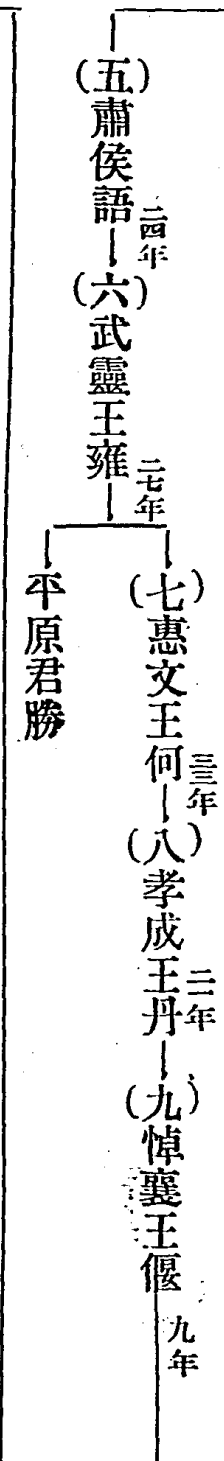 (五)肅侯語 二四年
(六)武靈王雍 二七年
(七)惠文王何 三三年
(八)孝成王丹 二一年
(九)悼襄王偃 九年
平原君勝